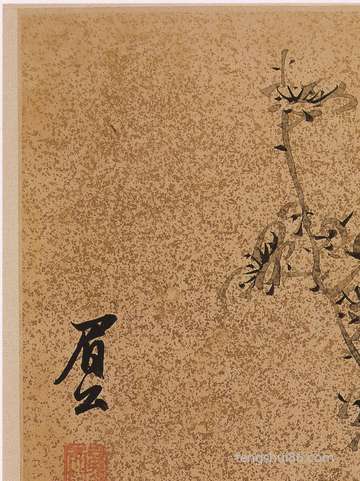 眉公
fengshui86.com